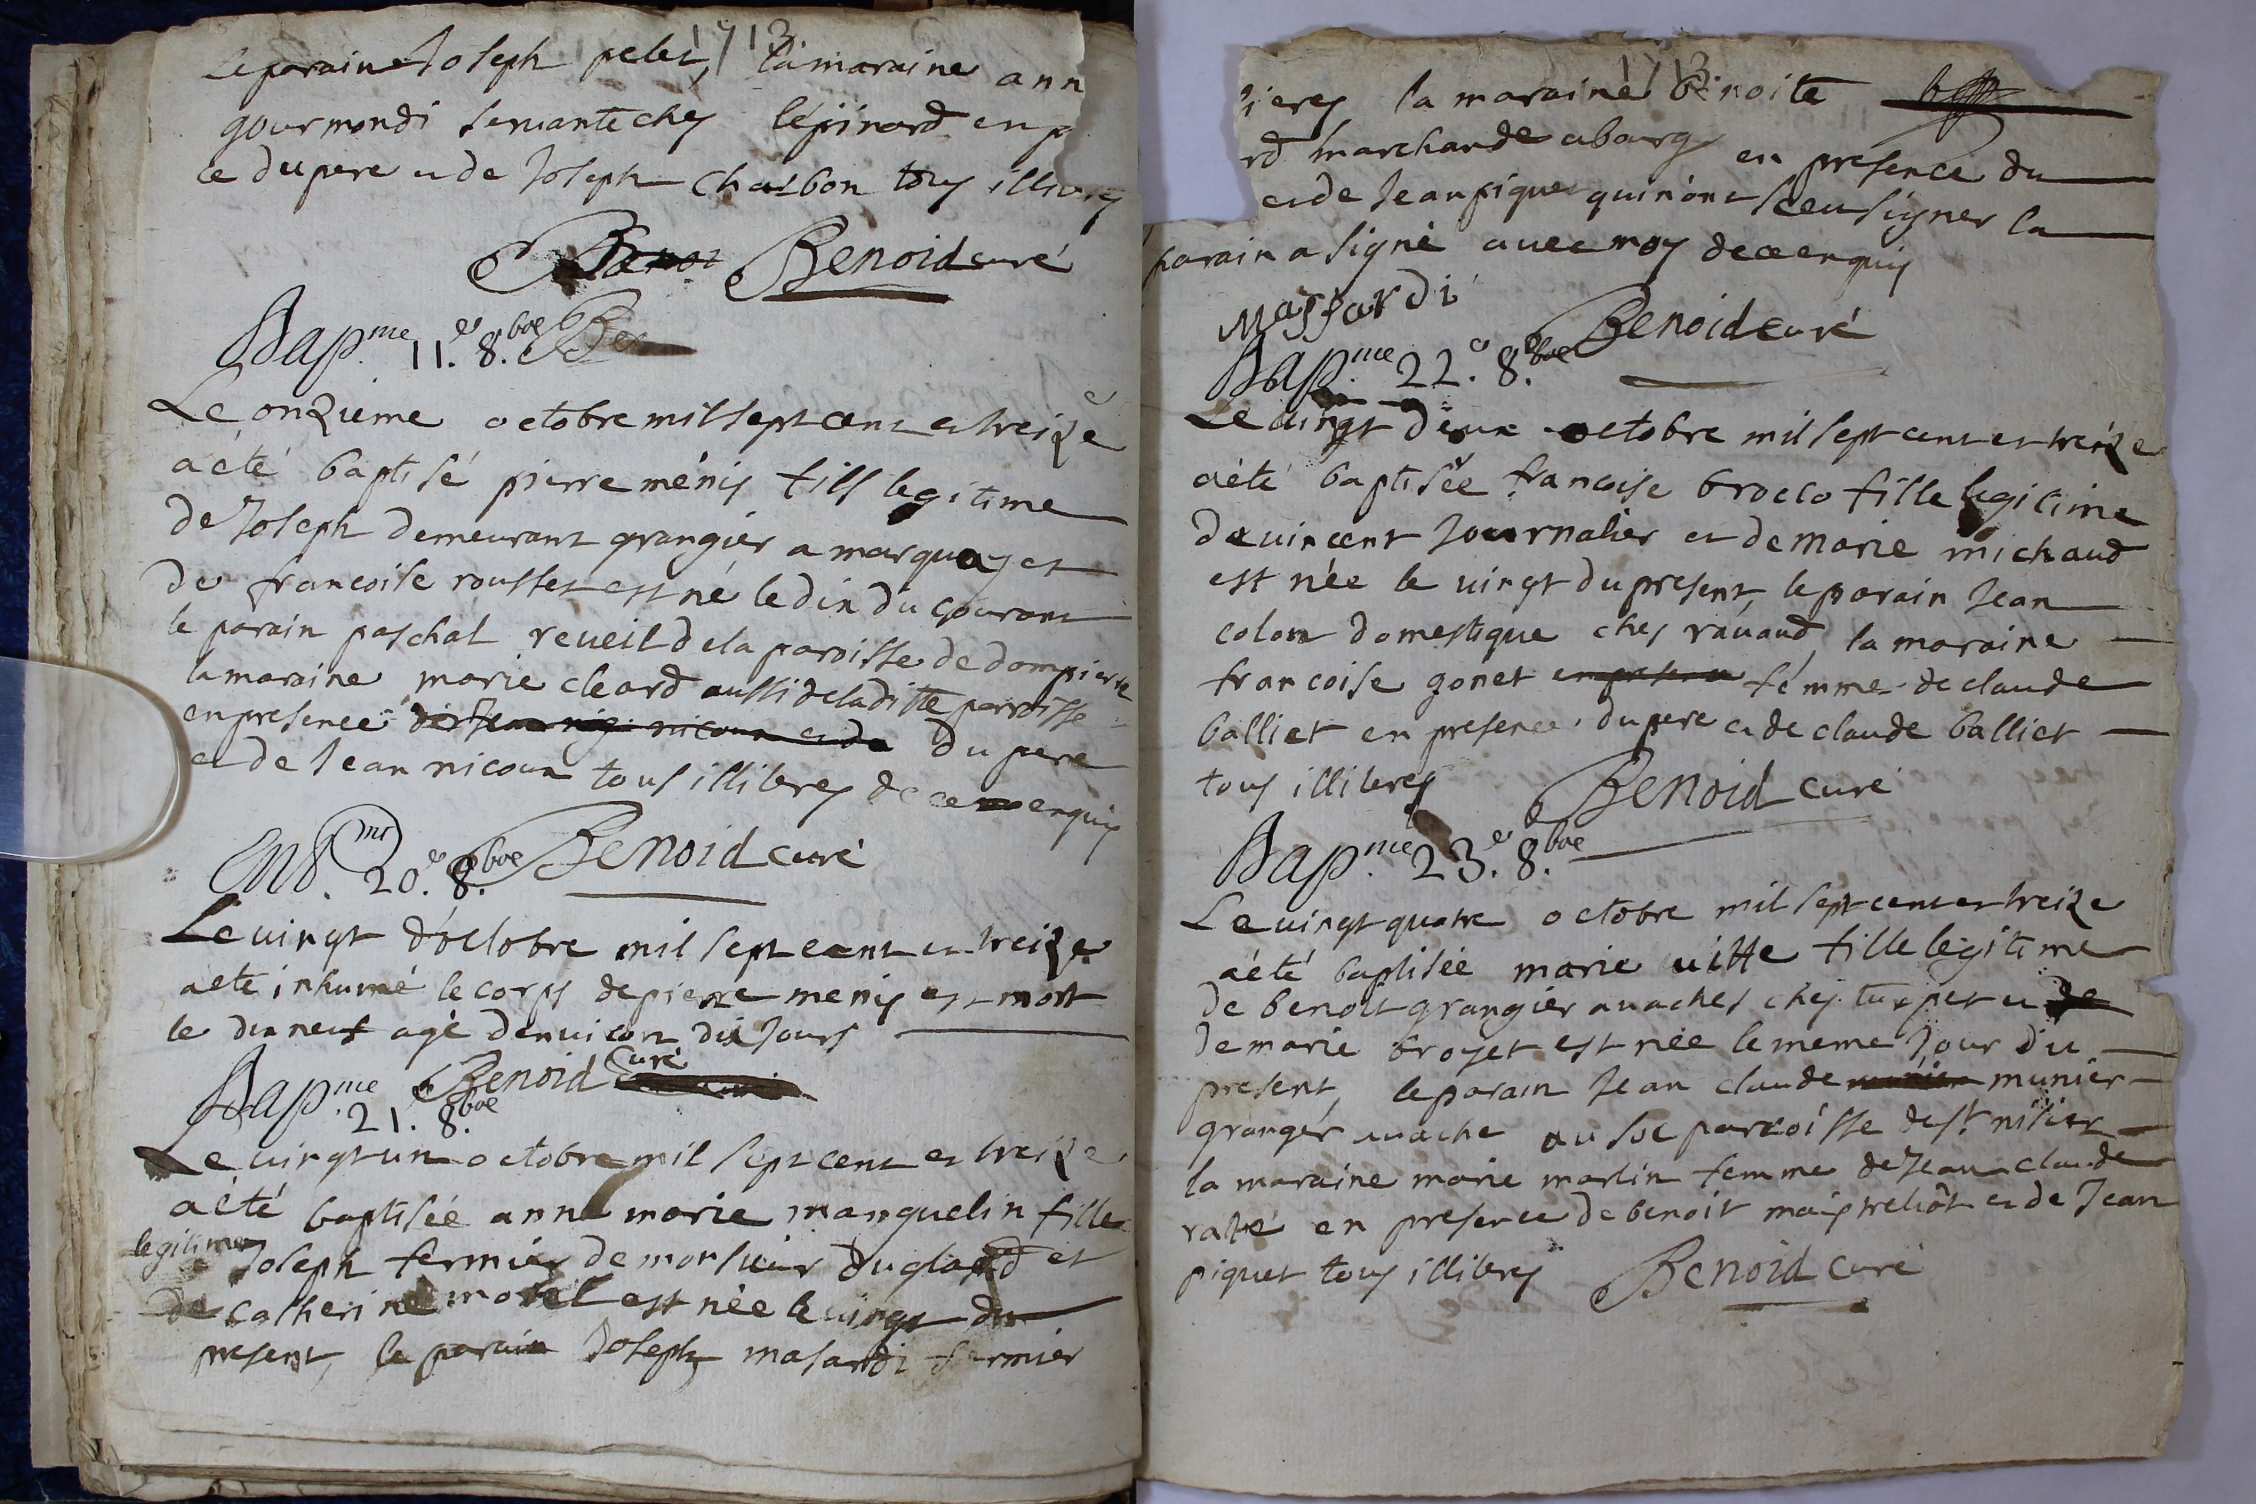 1713
Le parain Joseph pelet, la maraine ann
gourmondi servante ches lépinard en p
ce du pere et de Joseph Charbon tous illiteres
Benoid curé
Bap.me 11.e 8.boe
Le onzieme octobre mil sept cent et treize
a eté baptisé pierre ménis fils legitime
de Joseph demeurant grangier a marquay et
de francoise rousset est né le dix du courant
le parain paschal reveil de la paroisse de dompierre
la maraine marie cleard aussi de la ditte parroisse
en presence du pere
et de Jean nicoux tous illiteres de ce enquis
Benoid curé
Ent.mt 20.e 8.boe
Le vingt d'octobre mil sept cent et treize
a ete inhumé le corps de pierre menis est mort
le dix neuf agé d'enviconr dix Jours
Benoid curé
Bap.me 21. 8.boe
Le vingt un octobre mil sept cent et treize
a été baptisée anne marie manquelin fille
legitime Joseph fermier de monsieur duglard et
de catherine morel est née le vingt du
present, le parain Joseph masardi fermier
1713
ieres la maraine benoite
rd marchande abourg en presence du
et de Jean pique qui n'ont sceu signer la
parain a signé avec moy de ce enquis
Massardi
Benoid curé
Bap.me 22.e 8.boe
Le vingt deux octobre mil sept cent et treize
a été baptisée francoise broclo fille legitime
de vincent Journalier et de marie michaud
est née le vingt du present, le parain Jean
colon domestique ches ravaud, la maraine
francoise gonet en presence femme de claude
balliet en presence du pere et de claude balliet
tous illiteres
Benoid curé
Bap.me 23.e 8.boe
Le vingt quatre octobre mil sept cent et treize
a été baptisée marie vitte fille legitime
de benoit grangier a vaches ches turpet et de
de marie broyet est née le meme Jour du
present, le parain Jean claude munier
grangér a vache au soc parroisse de st. nisier
la maraine marie marlin femme de Jean claude
ravé en presence de benoit et de Jean
piquet tous illiteres
Benoid curé